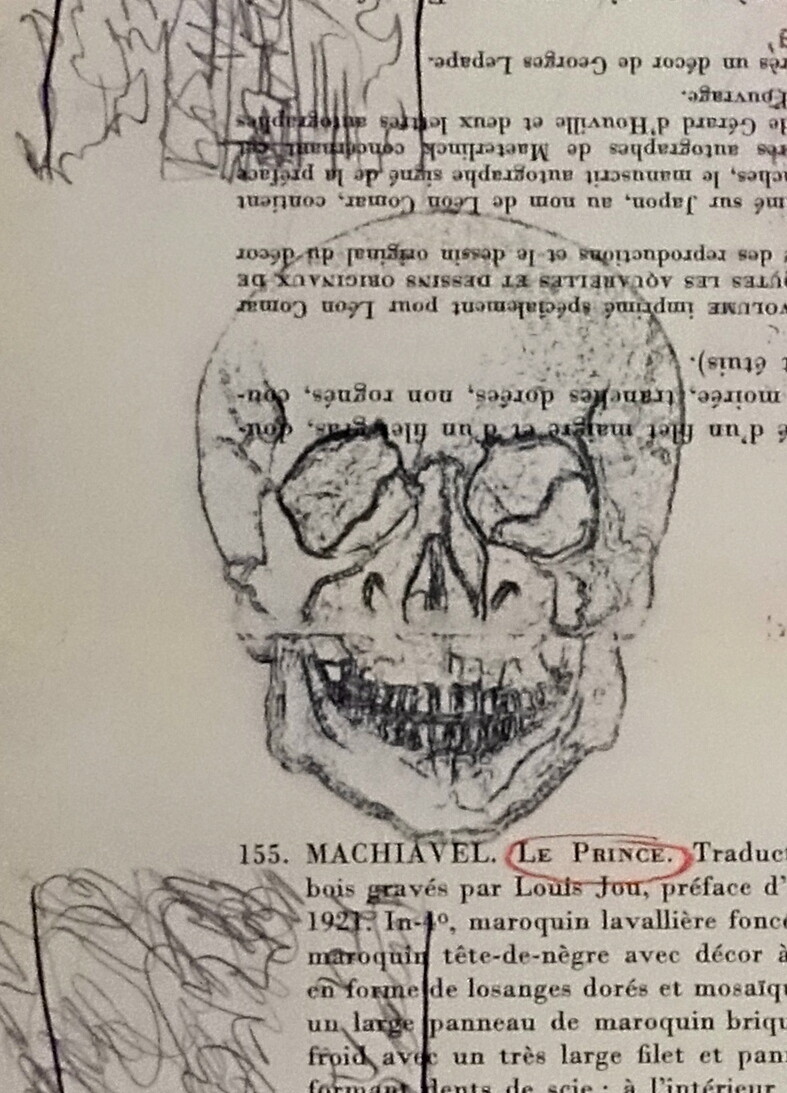 é d'un filet maigre et d'un filet gras, dou-
moirée, tranches dorées, non rognés, cou-
t étuis).
VOLUME imprimé spécialement pour Léon Comar
UTES LES AQUARELLES ET DESSINS ORIGINAUX DE
des reproductions et le dessin original du décor
mé sur Japon, au nom de Léon Comar, contient
ches, le manuscrit autographe signé de la préface
rès autographes de Maeterlinck concernant cet
de Gérard d'Houville et deux lettres autographes
l'ouvrage.
rès un décor de Georges Lepape.
155. MACHIAVEL. LE PRINCE. Traduct
bois gravés par Louis Jou, préface d'
1921. In-4º, maroquin lavallière foncé
maroquin tête-de-nègre avec décor à
en forme de losanges dorés et mosaïqu
un large panneau de maroquin briqu
froid avec un très large filet et pann
formant dents de scie ; à l'intérieur